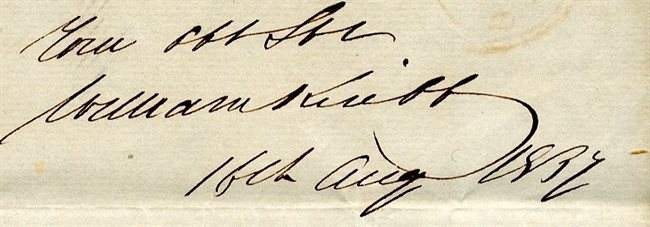 Your Obt Svt
William Knibb
16th Aug 1837